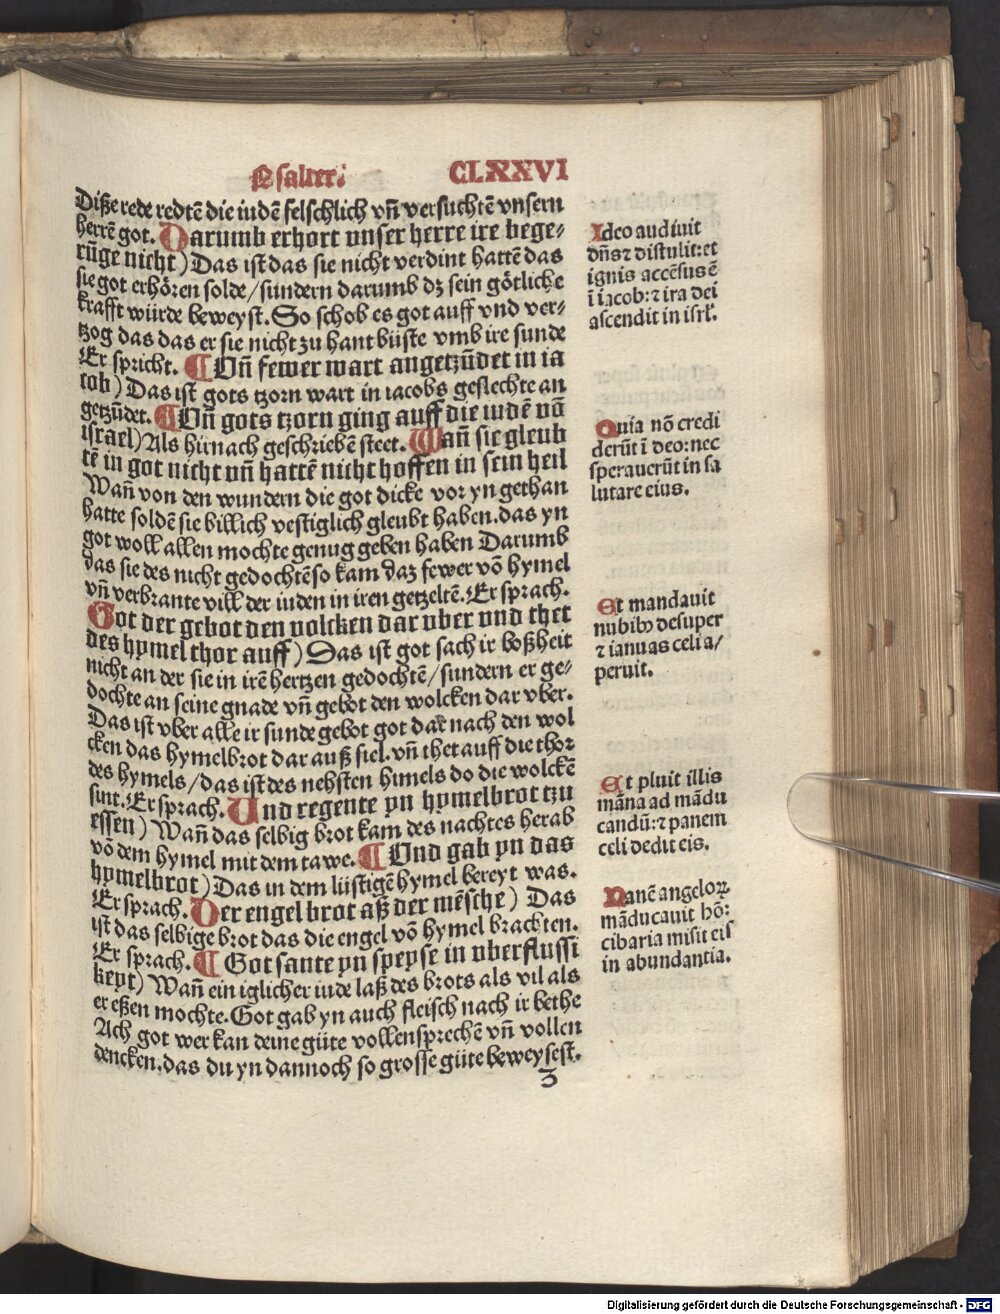 Psalter. CLXXVI
Diße rede redtē die iudē felschlich vn̄ versuchtē vnsern
herrē got. Darumb erhort vnser herre ire bege-
rūge nicht) Das ist das sie nicht verdint hattē das
sie got erhören solde/sundern darumb dz sein götliche
krafft würde beweyst. So schob es got auff vnd ver-
tzog das das er sie nicht zu hant büste vmb ire sunde
Er spricht. ¶ Vn̄ fewer wart angetzūdet in ia
cob) Das ist gots tzorn wart in iacobs geslechte an
getzūdet. ¶ Vn̄ gots tzorn ging auff die iudē vō
israel) Als hirnach geschriebē steet. Wan̄ sie gleub
tē in got nicht vn̄ hattē nicht hoffen in sein heil
Wan̄ von den wundern die got dicke vor yn gethan
hatte soldē sie billich vestiglich gleubt haben. das yn
got woll allen mochte genug geben haben Darumb
das sie des nicht gedochtē so kam daz fewer vō hymel
vn̄ verbrante vill der iuden in iren getzeltē. Er sprach.
Got der gebot den volcken dar vber vnd thet
des hymel thor auff) Das ist got sach ir boßheit
nicht an der sie in irē hertzen gedochtē/sundern er ge-
dochte an seine gnade vn̄ gebot den wolcken dar vber.
Das ist vber alle ir sunde gebot got dar nach den wol
cken das hymelbrot dar auß fiel. vn̄ thet auff die thor
des hymels/das ist des nehsten himels do die wolckē
sint. Er sprach. Und regente yn hymelbrot tzu
essen) Wan̄ das selbig brot kam des nachtes herab
vō dem hymel mit dem tawe. ¶ Vnd gab yn das
hymelbrot) Das in dem lüstigē hymel bereyt was.
Er sprach. Der engel brot aß der mēsche) Das
ist das selbige brot das die engel vō hymel brachten.
Er sprach. ¶ Got sante yn speyse in vberflussi
keyt) Wan̄ ein iglicher iude laß des brots als vil als
er eßen mochte. Got gab yn auch fleisch nach ir bethe
Ach got wer kan deine güte vollensprechē vn̄ vollen
dencken. das du yn dannoch so grosse güte beweysest.
z
Ideo audiuit
dn̄s ⁊ distulit: et
ignis accēsus ē
ī iacob: ⁊ ira dei
ascendit in isrl̄.
Quia nō credi
derūt ī deo: nec
sperauerūt in sa
lutare eius.
Et mandauit
nubibꝫ desuper
⁊ ianuas celi a/
peruit.
Et pluit illis
māna ad mādu
candū: ⁊ panem
celi dedit eis.
Panē angeloꝝ
māducauit hō:
cibaria misit eis
in abundantia.
Digitalisierung gefördert durch die Deutsche Forschungsgemeinschaft - DFG